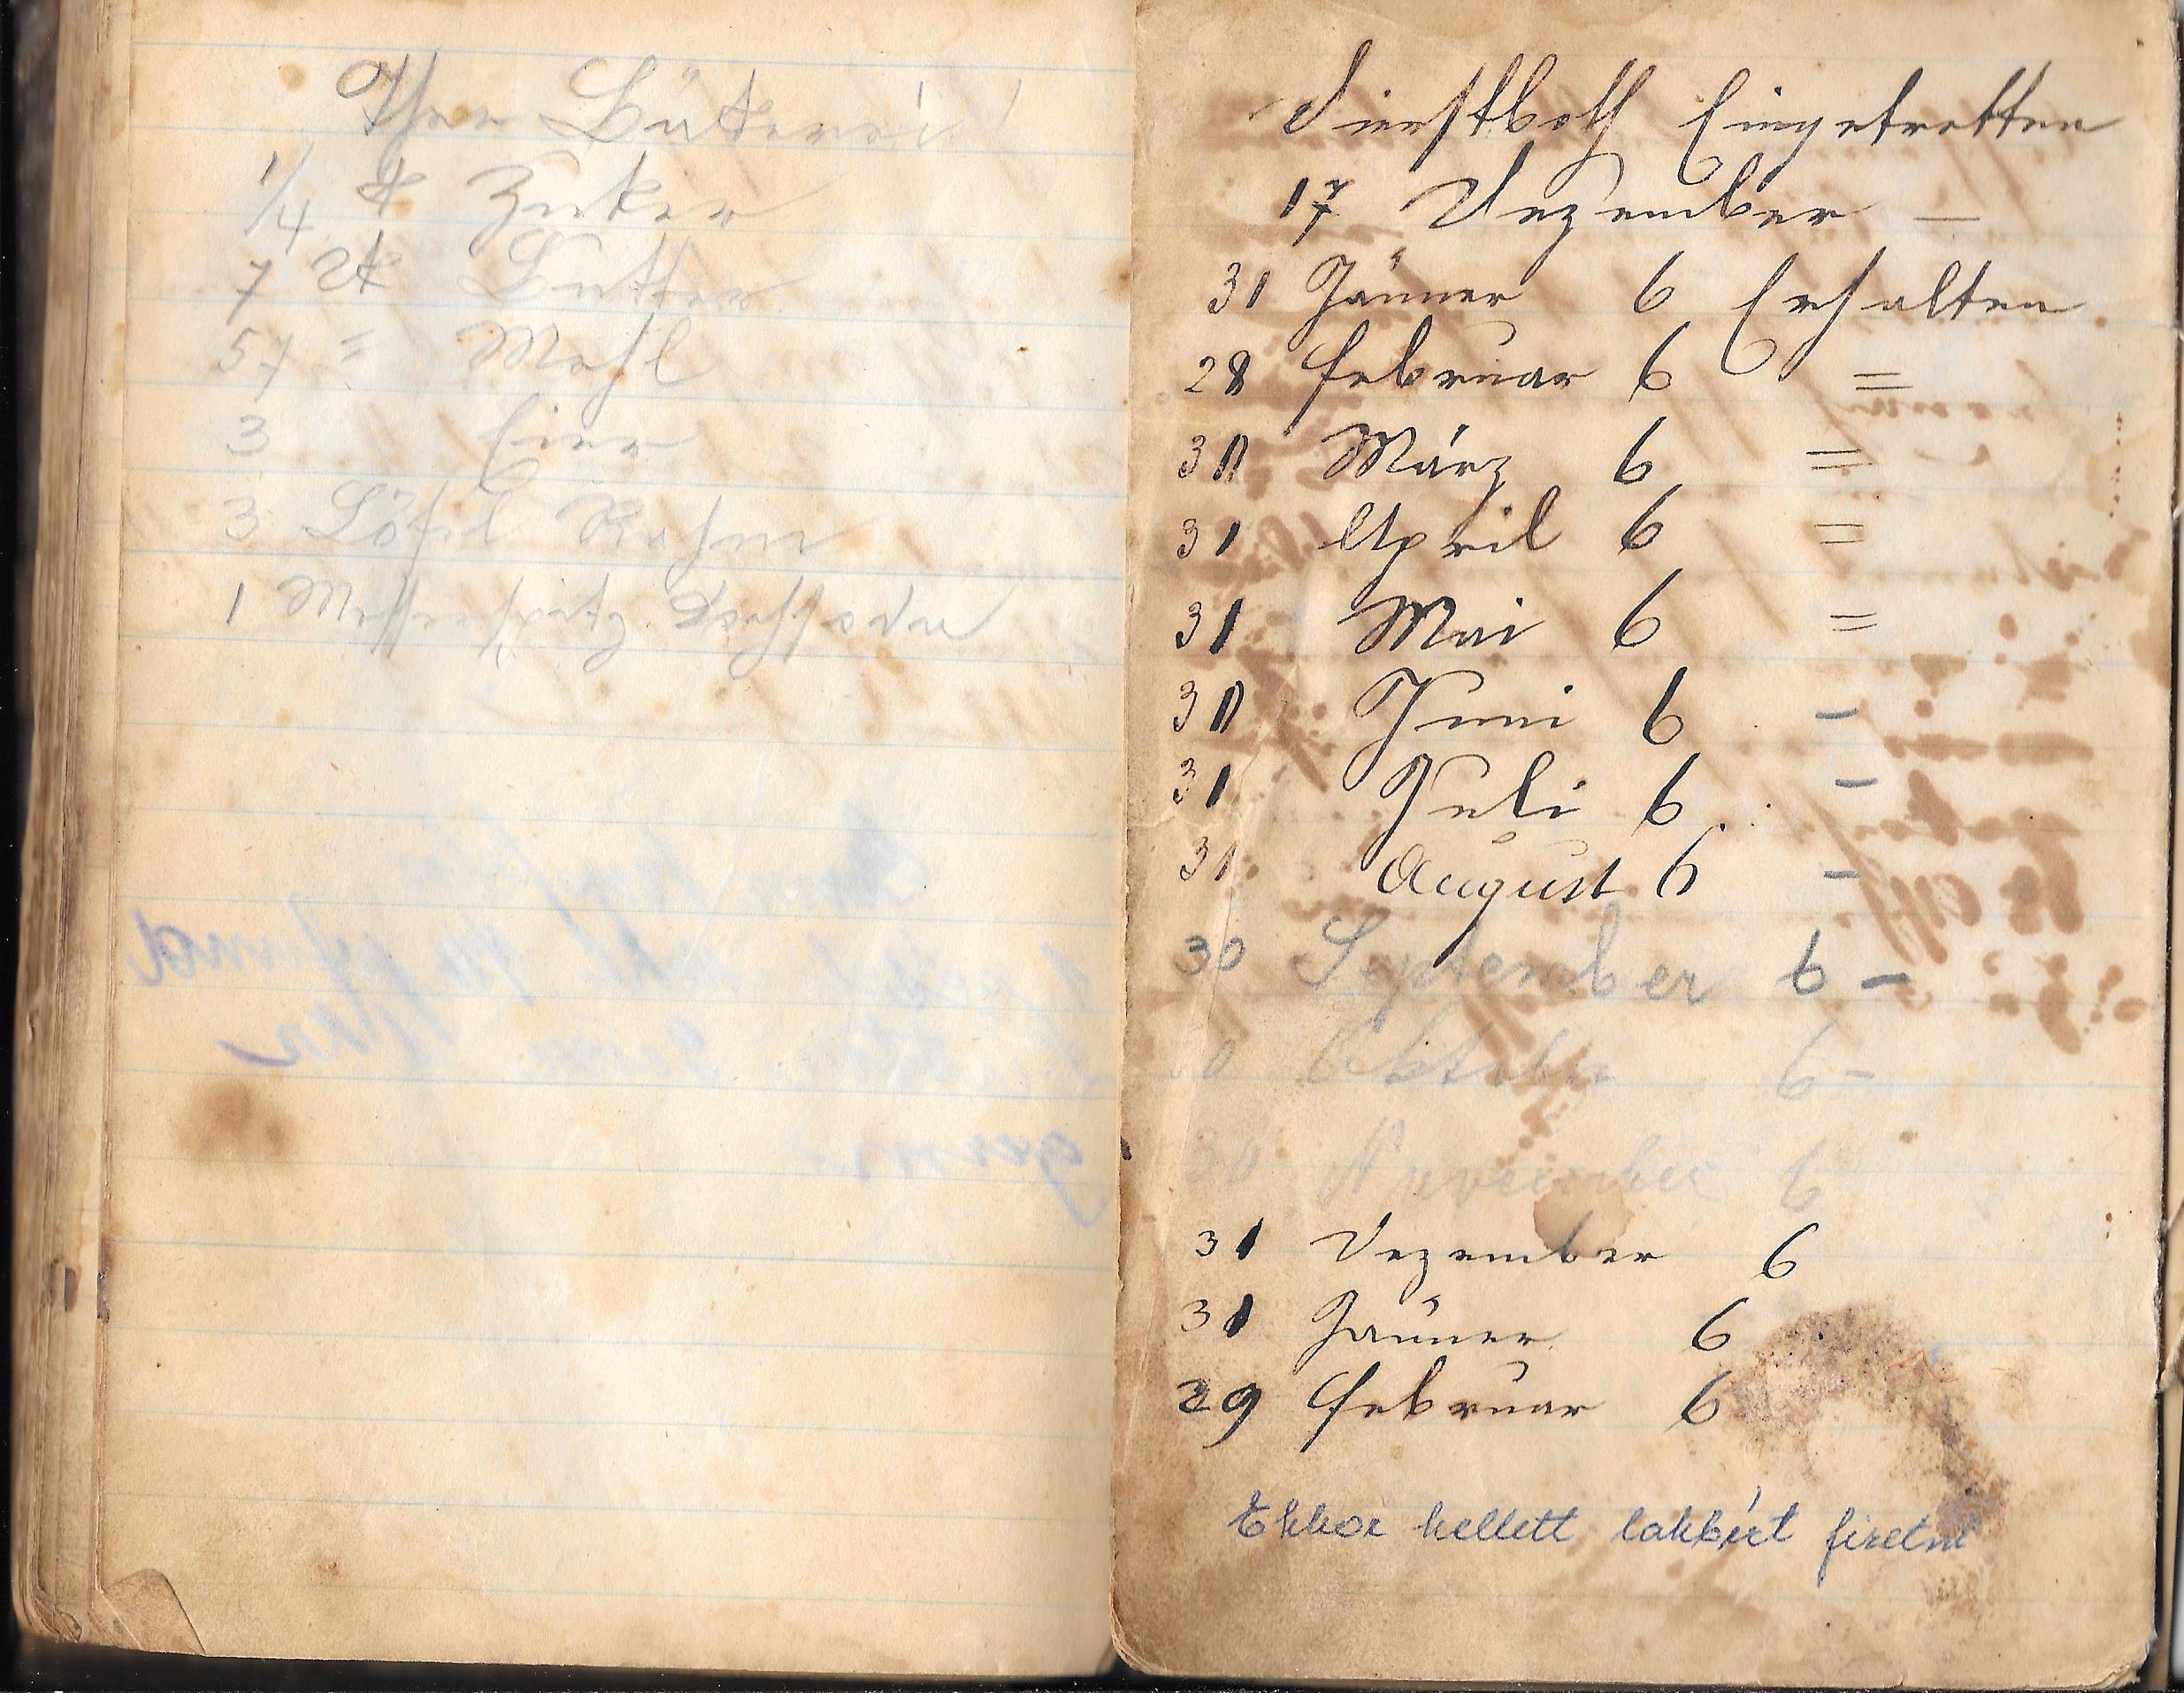 Thee Bäkerei
1/4 ℔ Zuker
7 Dk Butter
57 = Mehl
3 Eier
3 Löfel Rahm
1 Messerspitz Kochsoda
Dienstboth Eingetretten
17 Dezember —
31 Jänner 6 Erhalten
28 Februar 6 =
31 März 6 =
31 April 6 =
31 Mai 6 =
30 Juni 6 -
31 Juli 6 -
31 August 6 -
30 September 6 -
Oktober 6 -
30 November 6
31 Dezember 6
31 Jänner 6
29 Februar 6
Ekkor kellett lakbért fizetni